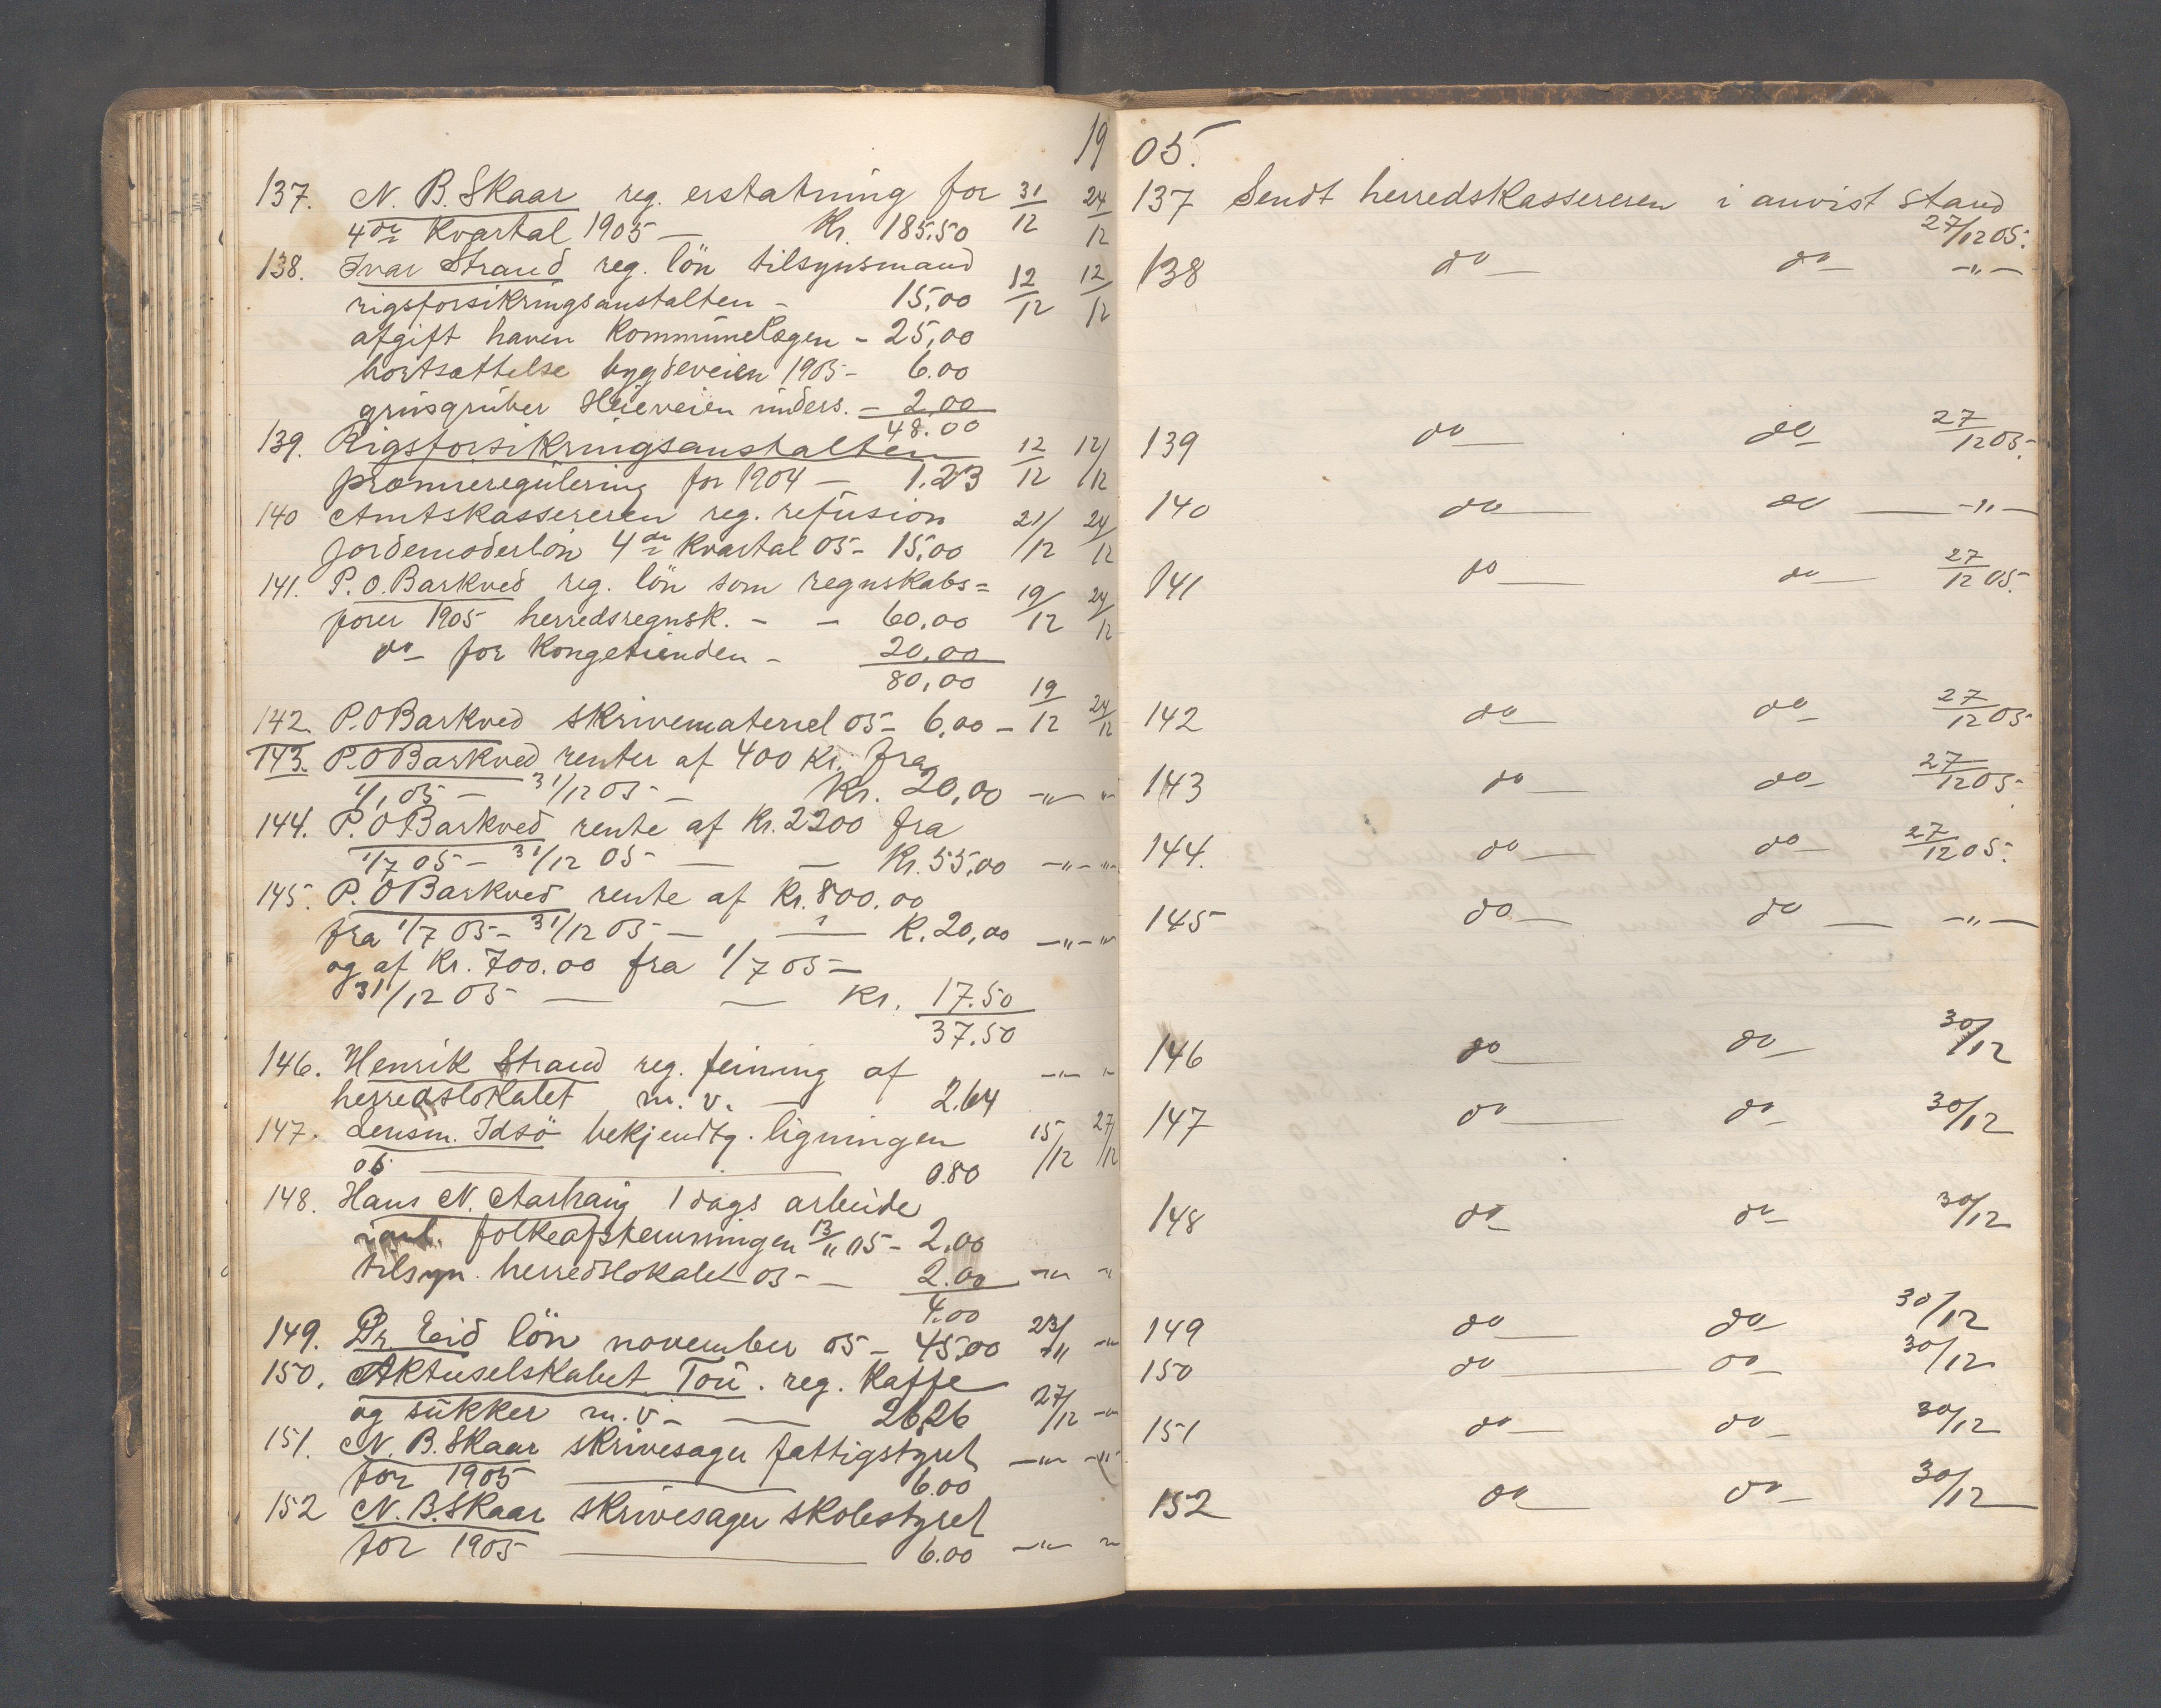 1905.
137. N. B. Skaar reg. erstatning for 31/12 24/12
4de kvartal 1905 — Kr. 185.50
138. Ivar Strand reg. lön tilsynsmand
rigsforsikringsanstalten - 15,00 12/12 12/12
afgift haven kommunelægen - 25,00
bortsættelse bygdeveien 1905 - 6.00
grusgruber Heieveien unders. - 2,00
48.00
139. Rigsforsikringsanstalten 12/12 12/12
præmieregulering for 1904 — 1.23
140 Amtskassereren reg. refusion 21/12 24/12
jordemoderlön 4de kvartal 05 - 15,00
141. P. O. Barkved reg. lön som regnskabs= 19/12 24/12
fører 1905 herredsregnsk. - - 60.00
do for Kongetienden - 20,00
80,00
142. P. O Barkved skrivemateriel 05 - 6,00 - 19/12 24/12
143. P. O Barkved renter af 400 Kr. fra
1/1 05 — 31/12 05 — Kr. 20,00 -"- "
144. P. O Barkved rente af Kr. 2200 fra
1/7 05 — 31/12 05 — — Kr. 55,00 -"- "
145. P. O Barkved rente af Kr. 800.00
fra 1/7 05 — 31/12 05 — — K. 20,00 -"- "
og af Kr. 700.00 fra 1/7 05 —
31/12 05 — — Kr. 17.50
37.50
146. Henrik Strand reg. feining af -"- "
herredslokalet m. v. — 2.64
147. Lensm. Idsö bekjendtg. ligningen 15/12 27/12
05 — 0.80
148. Hans N. Aarhaug 1 dags arbeide
i anl. folkeafstemningen 13/11 05 - 2.00
tilsyn herredslokalet 05 - — 2.00 -"- "
4.00
149. Dr Eeid lön november 05 - 45.00 23/11 -"-
150. Aktieselskabet Tou. reg. Kaffe
og sukker m. v. — 26,26 27/12 -"-
151. N. B. Skaar skrivesager fattigstyret -"- -"-
for 1905 — 6.00
152 N. B. Skaar skrivesager skolestyret
for 1905 — 6.00 -"- "
137 Sendt herredskassereren i anvist stand
27/12 05.
138 do — do — -"-
139 do — do 27/12 05.
140 do — do — -"-
141 do — do — 27/12 05.
142 do — do — 27/12 05
143 do — do — 27/12 05.
144. do — do — 27/12 05.
145 do — do — -"-
146 do — do — 30/12
147 do — do — 30/12
148 do — do — 30/12
149 do — do — 30/12
150 do — do — 30/12
151 do — do — 30/12
152 do — do — 30/12